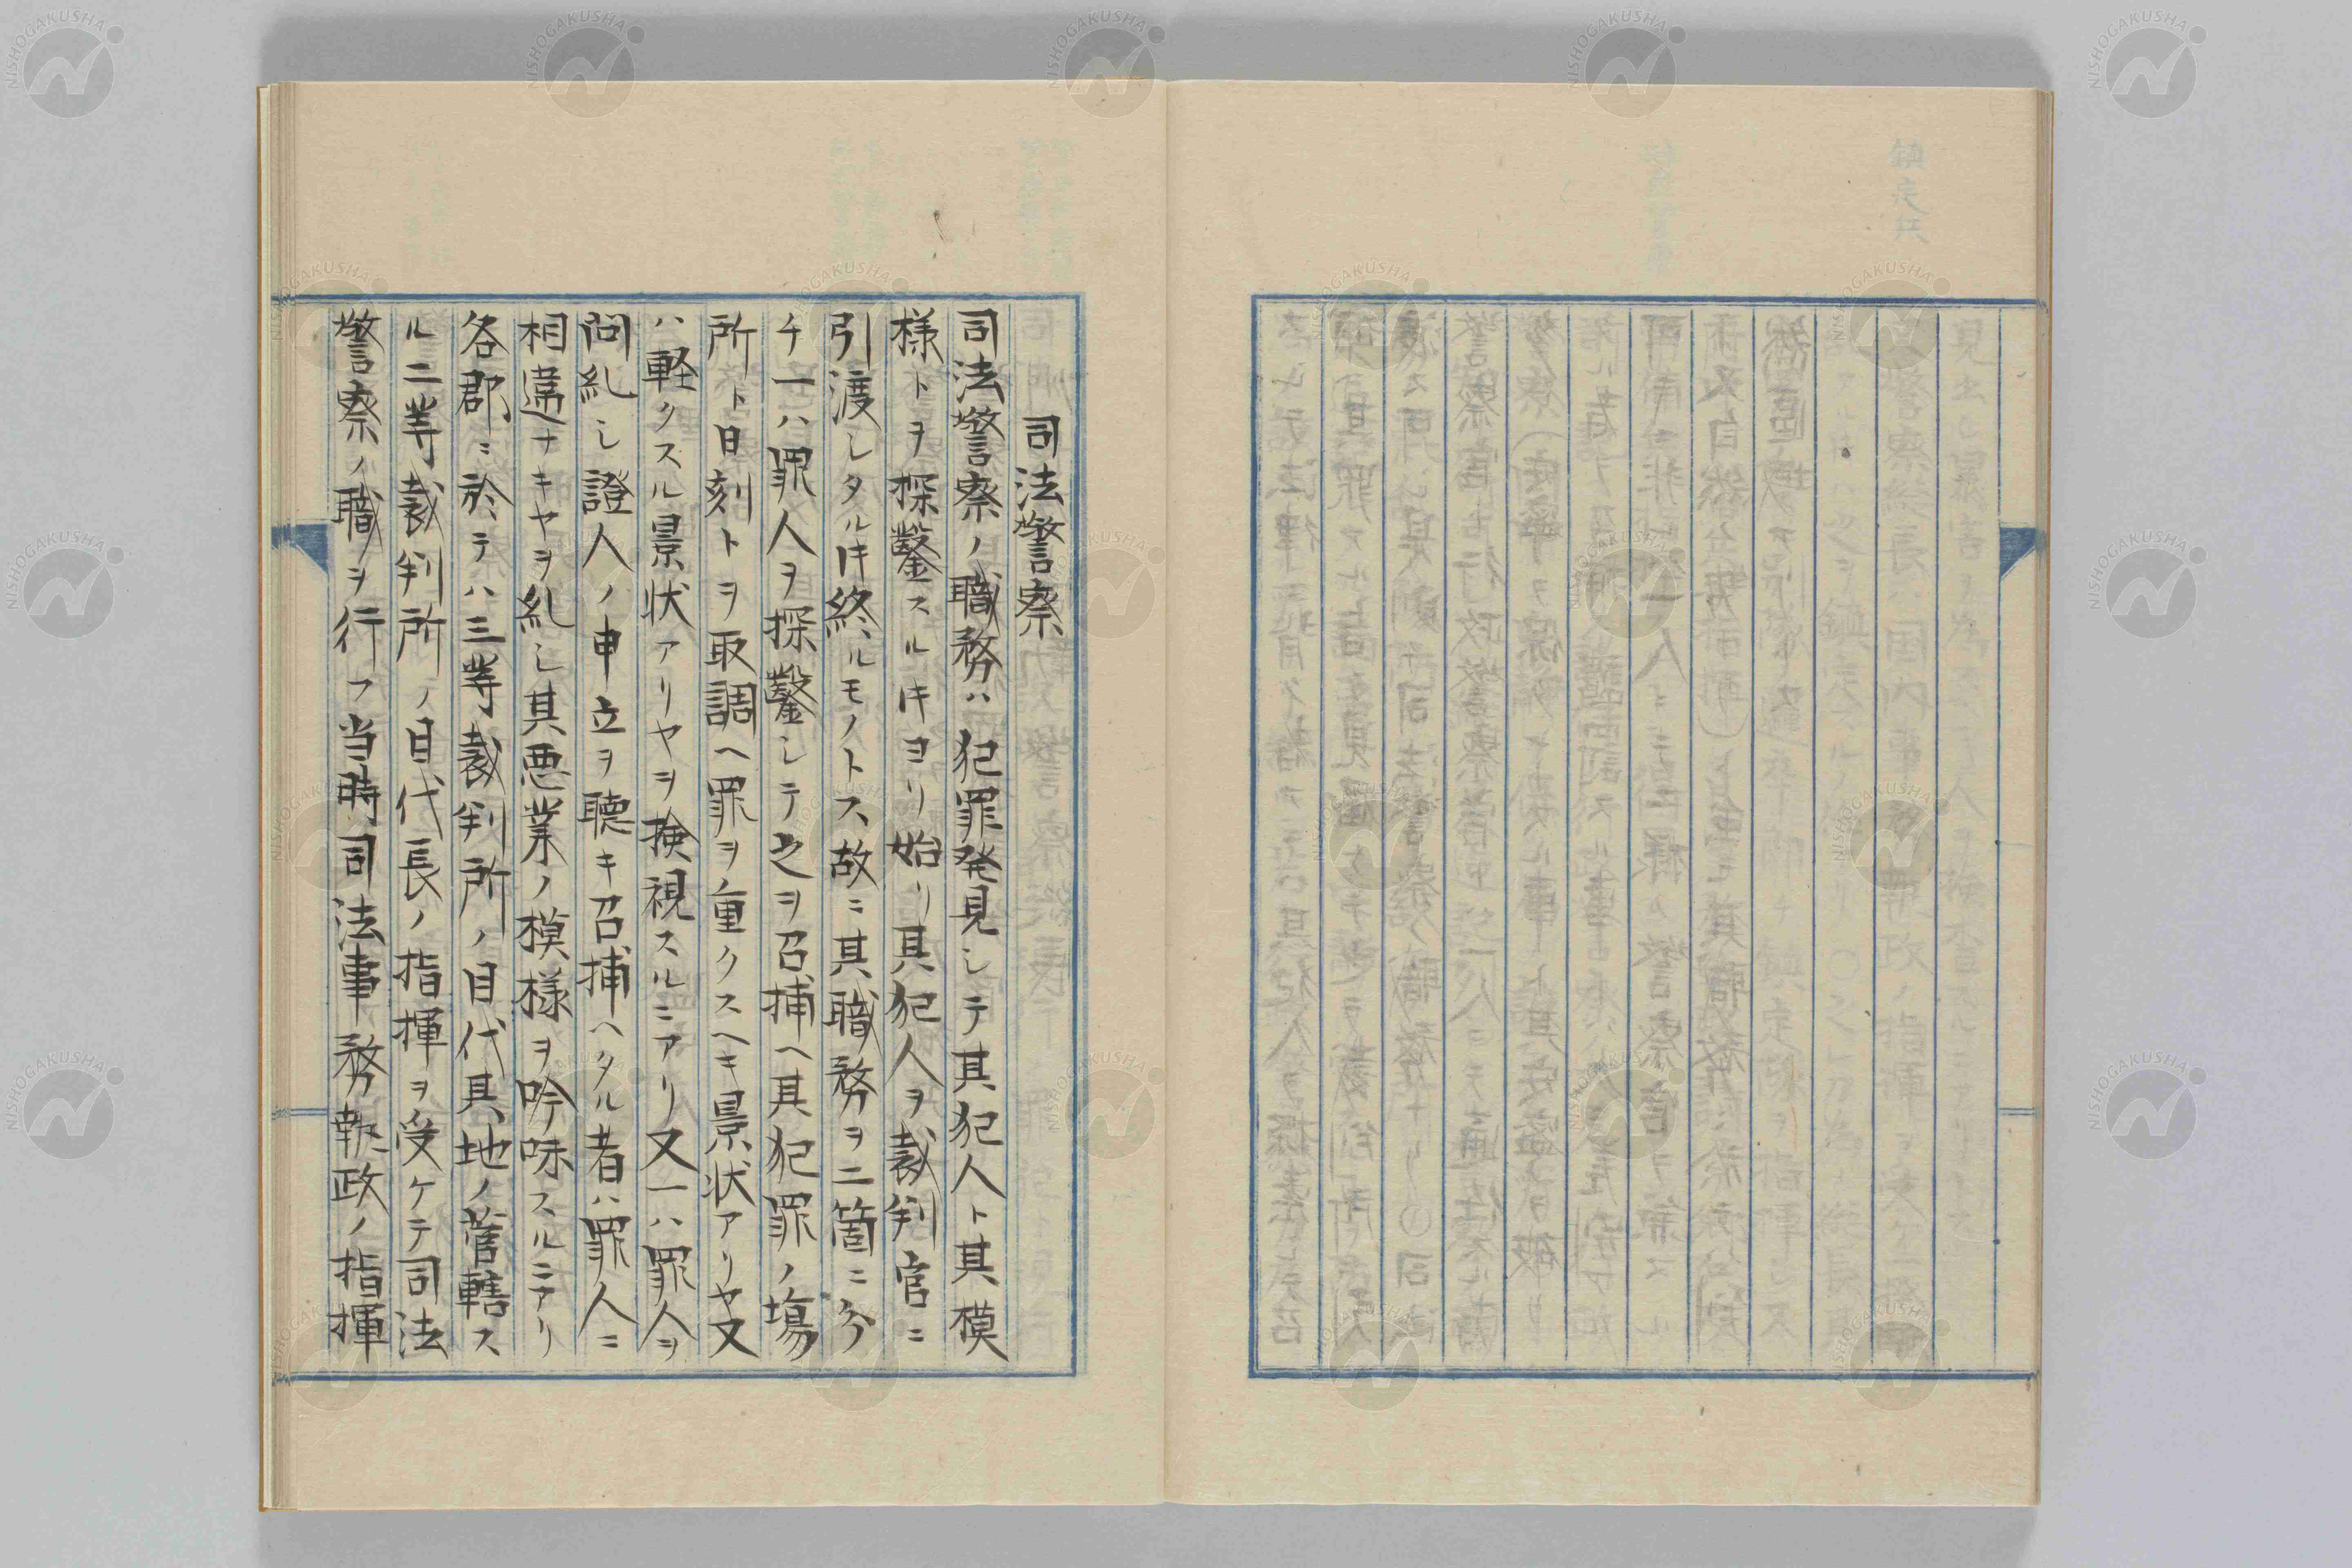 司法警察
司法警察ノ職務ハ犯罪発見シテ其犯人ト其模
様トヲ探鑿スルヿヨリ始リ其犯人ヲ裁判官ニ
引渡シタルヿ終ルモノトス故ニ其職務ヲ二箇ニ分
チ一ハ罪人ヲ探鑿シテ之ヲ召捕ヘ其犯罪ノ塲
所ト日刻トヲ取調ヘ罪ヲ重クスヘキ景状アリヤ又
ハ軽クスル景状アリヤヲ検視スルニアリ又一ハ罪人ヲ
問糺シ證人ノ申立ヲ聴キ召捕ヘタル者ハ罪人ニ
相違ナキヤヲ糺シ其悪業ノ模様ヲ吟味スルニアリ
各郡ニ於テハ三等裁判所ノ目代其地ノ管轄ス
ル二等裁判所ノ目代長ノ指揮ヲ受ケテ司法
警察ノ職ヲ行フ当時司法事務執政ノ指揮
NISHOGAKUSHA